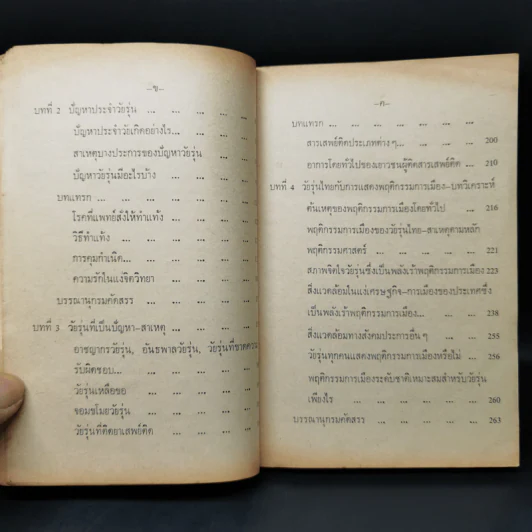 –ข–
บทที่ 2 ปัญหาประจำวัยรุ่น ... ... ... ... ...
ปัญหาประจำวัยเกิดอย่างไร... ... ... ...
สาเหตุบางประการของปัญหาวัยรุ่น ... ...
ปัญหาวัยรุ่นมีอะไรบ้าง ... ... ... ...
บทแทรก ... ... ... ... ... ...
โรคที่แพทย์สั่งให้ทำแท้ง ... ... ... ...
วิธีทำแท้ง ... ... ... ... ...
การคุมกำเนิด... ... ... ... ...
ความรักในแง่จิตวิทยา ... ... ... ...
บรรณานุกรมคัดสรร ... ... ... ... ...
บทที่ 3 วัยรุ่นที่เป็นปัญหา–สาเหตุ ... ... ... ...
อาชญากรวัยรุ่น, อันธพาลวัยรุ่น, วัยรุ่นที่ขาดความ
รับผิดชอบ... ... ... ... ...
วัยรุ่นเหลือขอ ... ... ... ... ...
จอมขโมยวัยรุ่น ... ... ... ... ...
วัยรุ่นที่ติดยาเสพย์ติด ... ... ... ...
–ค–
บทแทรก ... ... ... ... ... ... ...
สารเสพย์ติดประเภทต่าง ๆ... ... ... ... 200
อาการโดยทั่วไปของเยาวชนผู้ติดสารเสพย์ติด ... ... 210
บทที่ 4 วัยรุ่นไทยกับการแสดงพฤติกรรมการเมือง–บทวิเคราะห์
ต้นเหตุของพฤติกรรมการเมืองโดยทั่วไป ... ... 216
พฤติกรรมการเมืองของวัยรุ่นไทย–สาเหตุตามหลัก
พฤติกรรมศาสตร์ ... ... ... ... ... 221
สภาพจิตใจวัยรุ่นซึ่งเป็นพลังเร้าพฤติกรรมการเมือง 223
สิ่งแวดล้อมในแง่เศรษฐกิจ–การเมืองของประเทศซึ่ง
เป็นพลังเร้าพฤติกรรมการเมือง... ... ... ... 238
สิ่งแวดล้อมทางสังคมประการอื่น ๆ ... ... ... 255
วัยรุ่นทุกคนแสดงพฤติกรรมการเมืองหรือไม่ ... ... 256
พฤติกรรมการเมืองระดับชาติเหมาะสมสำหรับวัยรุ่น
เพียงไร ... ... ... ... ... ... 260
บรรณานุกรมคัดสรร ... ... ... ... ... 263